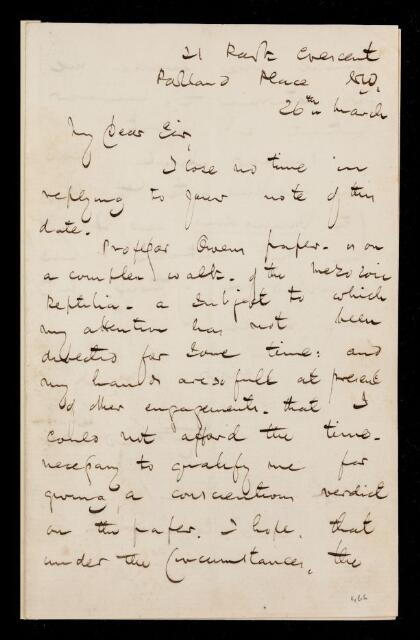 21 Park Crescent
Portland Place W.
26th March
My Dear Sir,
I lose no time in
replying to your note of this
date.
Professor Owens paper - is on
a complex of the Mesozoic
Reptilia - a subject to which
my attention has not been
directed for some time: and
my hands are so full at present
of other engagements - that I
could not afford the time -
necessary to qualify me for
giving a conscientious verdict
on the paper. I hope, that
under the Circumstances, the
466